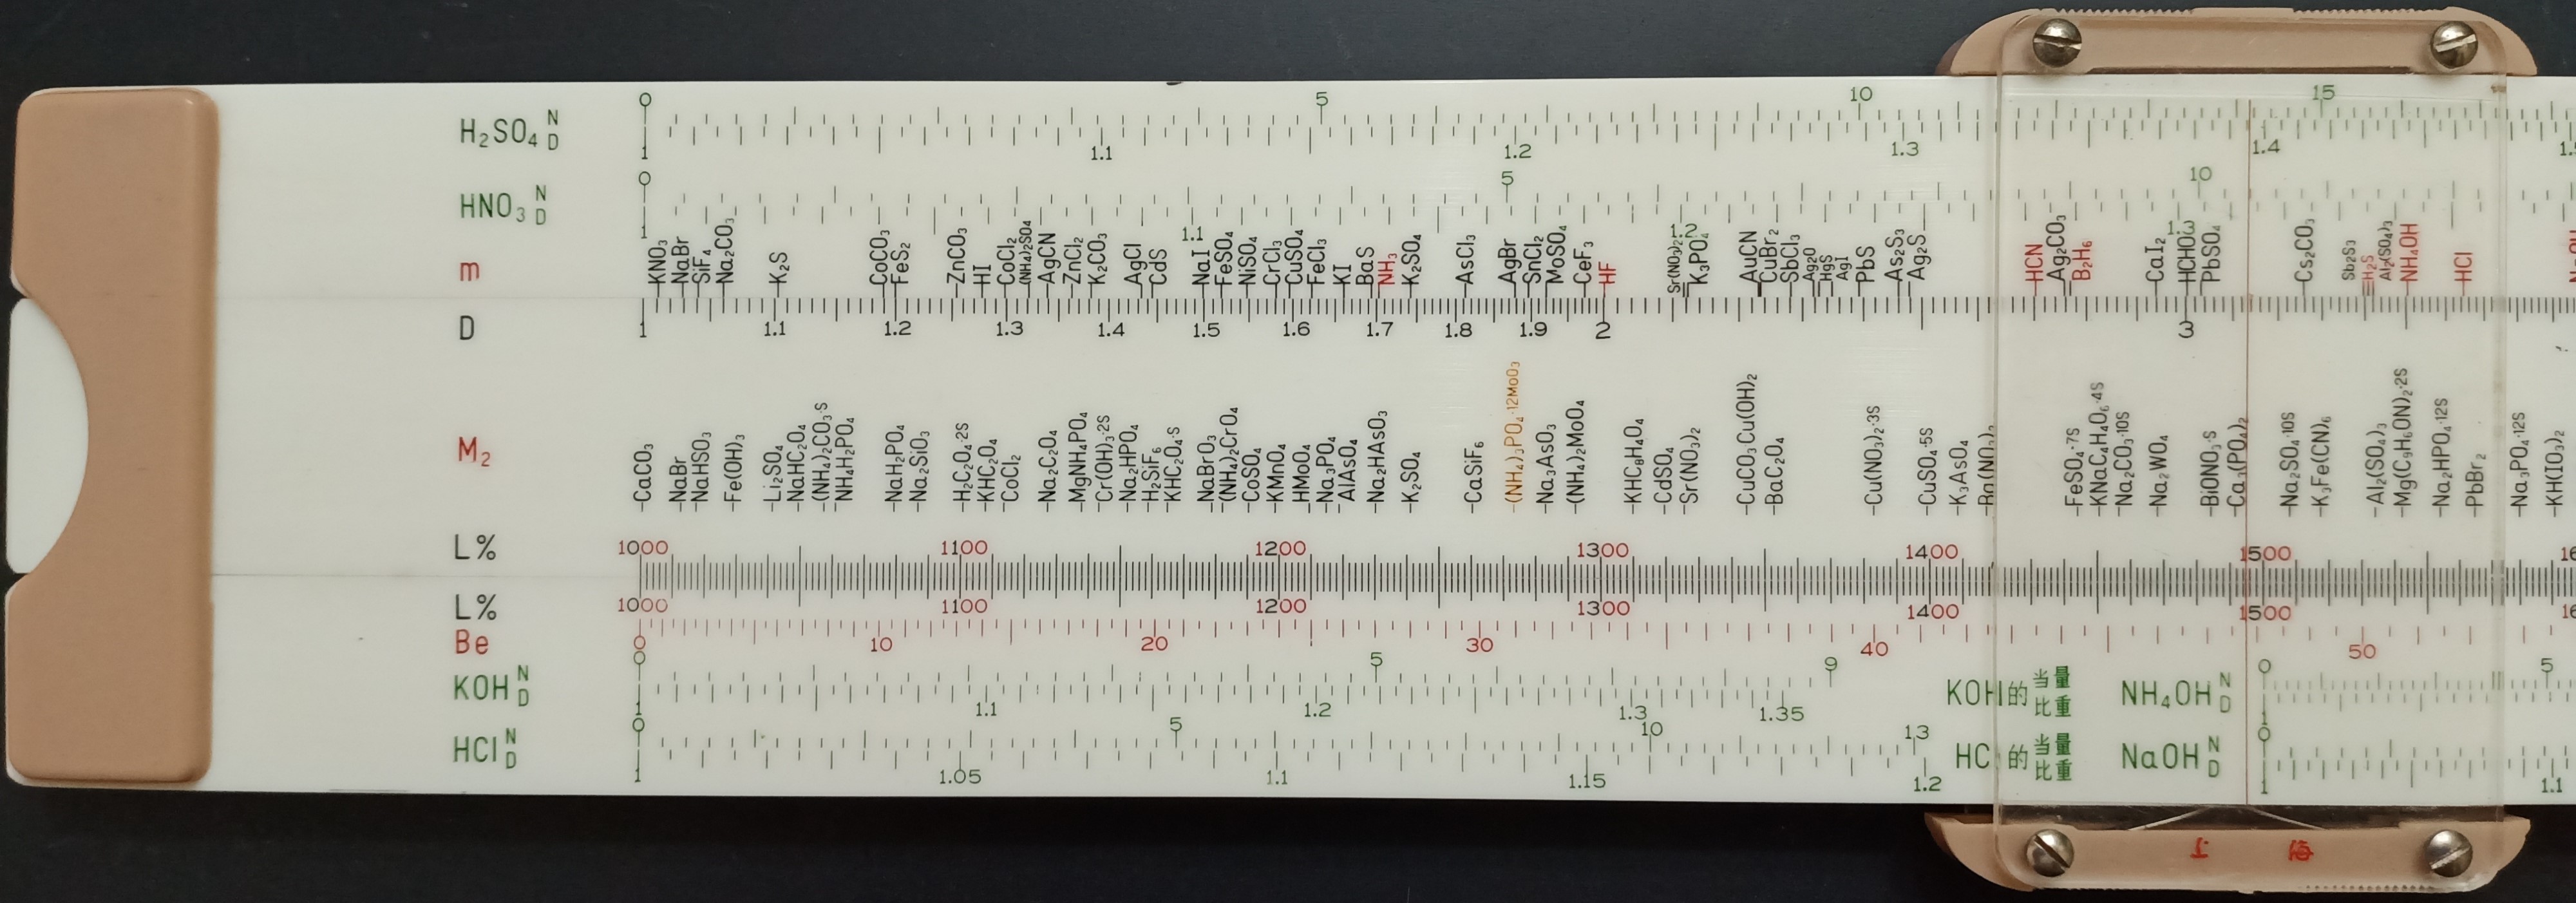 H₂SO₄ N 0 5 10 15
D 1 1.1 1.2 1.3 1.4
HNO₃ N 0 5 10
D 1 1.1 1.2
m KNO₃ NaBr SiF₄ Na₂CO₃ K₂S CoCO₃ FeS₂ ZnCO₃ HI CoCl₂ (NH₄)₂SO₄ AgCN ZnCl₂ K₂CO₃ AgCl CdS NaI FeSO₄ NiSO₄ CrCl₃ CuSO₄ FeCl₃ KI BaS NH₃ K₂SO₄ AsCl₃ AgBr SnCl₂ MoSO₄ CeF₃ HF Sr(NO₃)₂ K₃PO₄ AuCN CuBr₂ SbCl₃ Ag₂O HgS AgI PbS As₂S₃ Ag₂S HCN Ag₂CO₃ B₂H₆ CaI₂ PbSO₄ Cs₂CO₃ Sb₂S₃ H₂S Al₂(SO₄)₃ NH₄OH HCl
D 1 1.1 1.2 1.3 1.4 1.5 1.6 1.7 1.8 1.9 2 3
M₂ CaCO₃ NaBr NaHSO₃ Fe(OH)₃ Li₂SO₄ NaHC₂O₄ (NH₄)₂CO₃·S NH₄H₂PO₄ NaH₂PO₄ Na₂SiO₃ H₂C₂O₄·2S KHC₂O₄ CoCl₂ Na₂C₂O₄ MgNH₄PO₄ Cr(OH)₃·2S Na₂HPO₄ H₂SiF₆ KHC₂O₄·S NaBrO₃ (NH₄)₂CrO₄ CoSO₄ KMnO₄ HMoO₄ Na₃PO₄ AlAsO₄ Na₂HAsO₃ K₂SO₄ CaSiF₆ (NH₄)₃PO₄·12MoO₃ Na₃AsO₃ (NH₄)₂MoO₄ KHC₈H₄O₄ CdSO₄ Sr(NO₃)₂ CuCO₃Cu(OH)₂ BaC₂O₄ Cu(NO₃)₂·3S CuSO₄·5S K₃AsO₄ FeSO₄·7S KNaC₄H₄O₆·4S Na₂CO₃·10S Na₂WO₄ BiONO₃·S Ca₃(PO₄)₂ Na₂SO₄·10S K₃Fe(CN)₆ Al₂(SO₄)₃ Mg(C₉H₆ON)₂·2S Na₂HPO₄·12S PbBr₂ Na₃PO₄·12S KH(IO₃)₂
L% 1000 1100 1200 1300 1400 1500
L% 1000 1100 1200 1300 1400 1500
Be 0 10 20 30 40 50
KOH N 0 5 9 KOH的 当量 NH₄OH N 0 5
D 1 1.1 1.2 1.3 1.35 比重 D 1
HCl N 0 5 10 13 HCl的 当量 NaOH N 0
D 1 1.05 1.1 1.15 1.2 比重 D 1 1.1
上 海